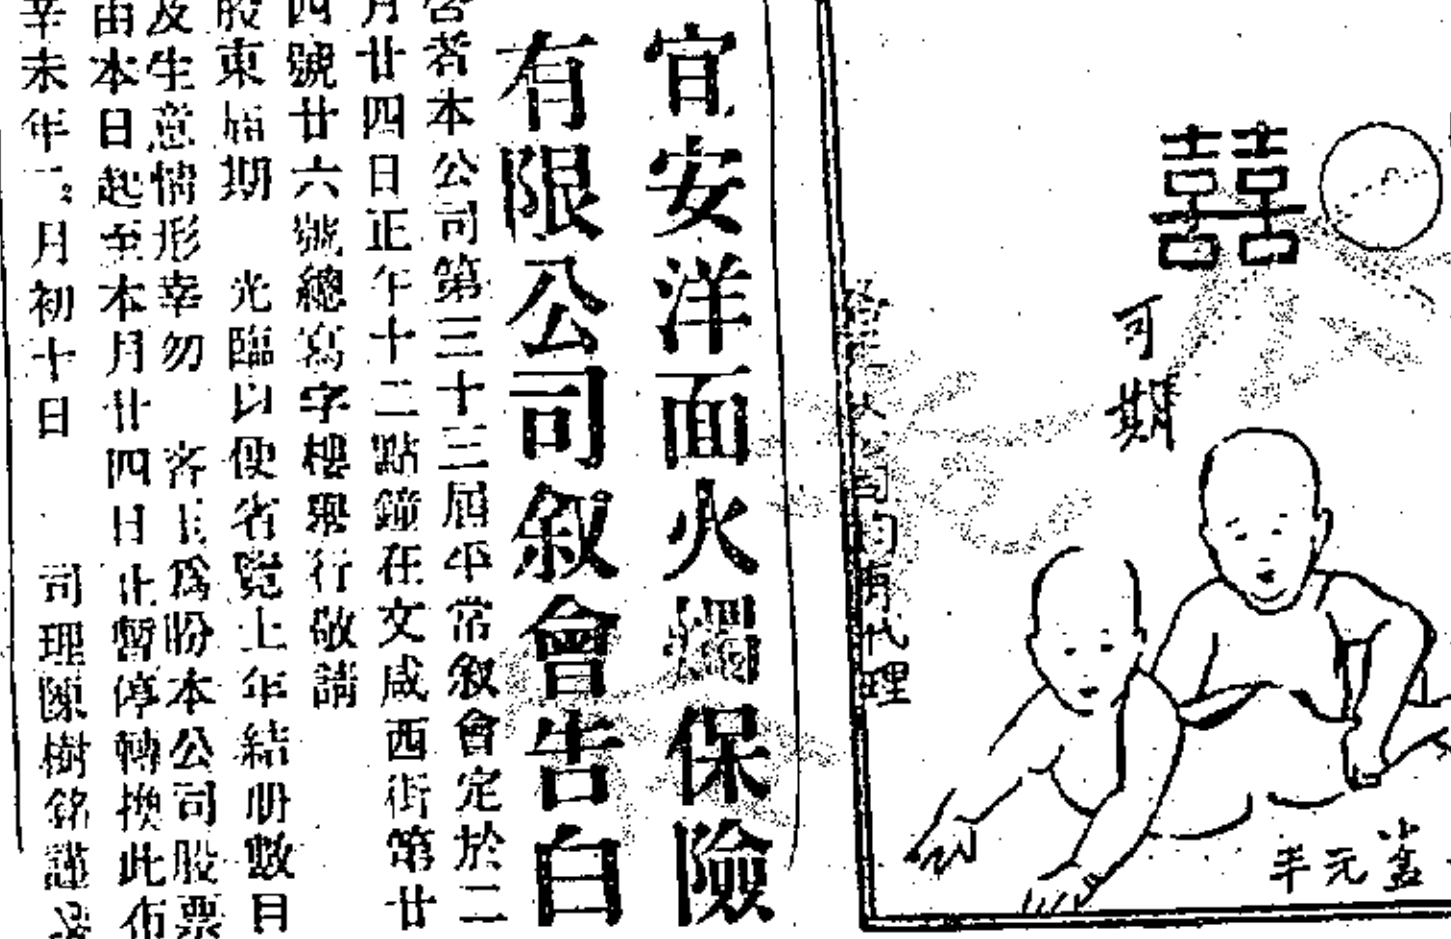 囍
可期
小盒
半元
大公司均有代理
宜安洋面火燭保險
有限公司敘會告白
啓者本公司第三十三屆平常敘會定於二
月廿四日正午十二點鐘在文咸西街第廿
四號廿六號總寫字樓舉行敬請
股東屆期 光臨以便省覽上年結册數目
及生意情形幸勿 吝玉爲盼本公司股票
由本日起至本月廿四日止暫停轉換此佈
辛未年二月初十日 司理陳樹銘謹